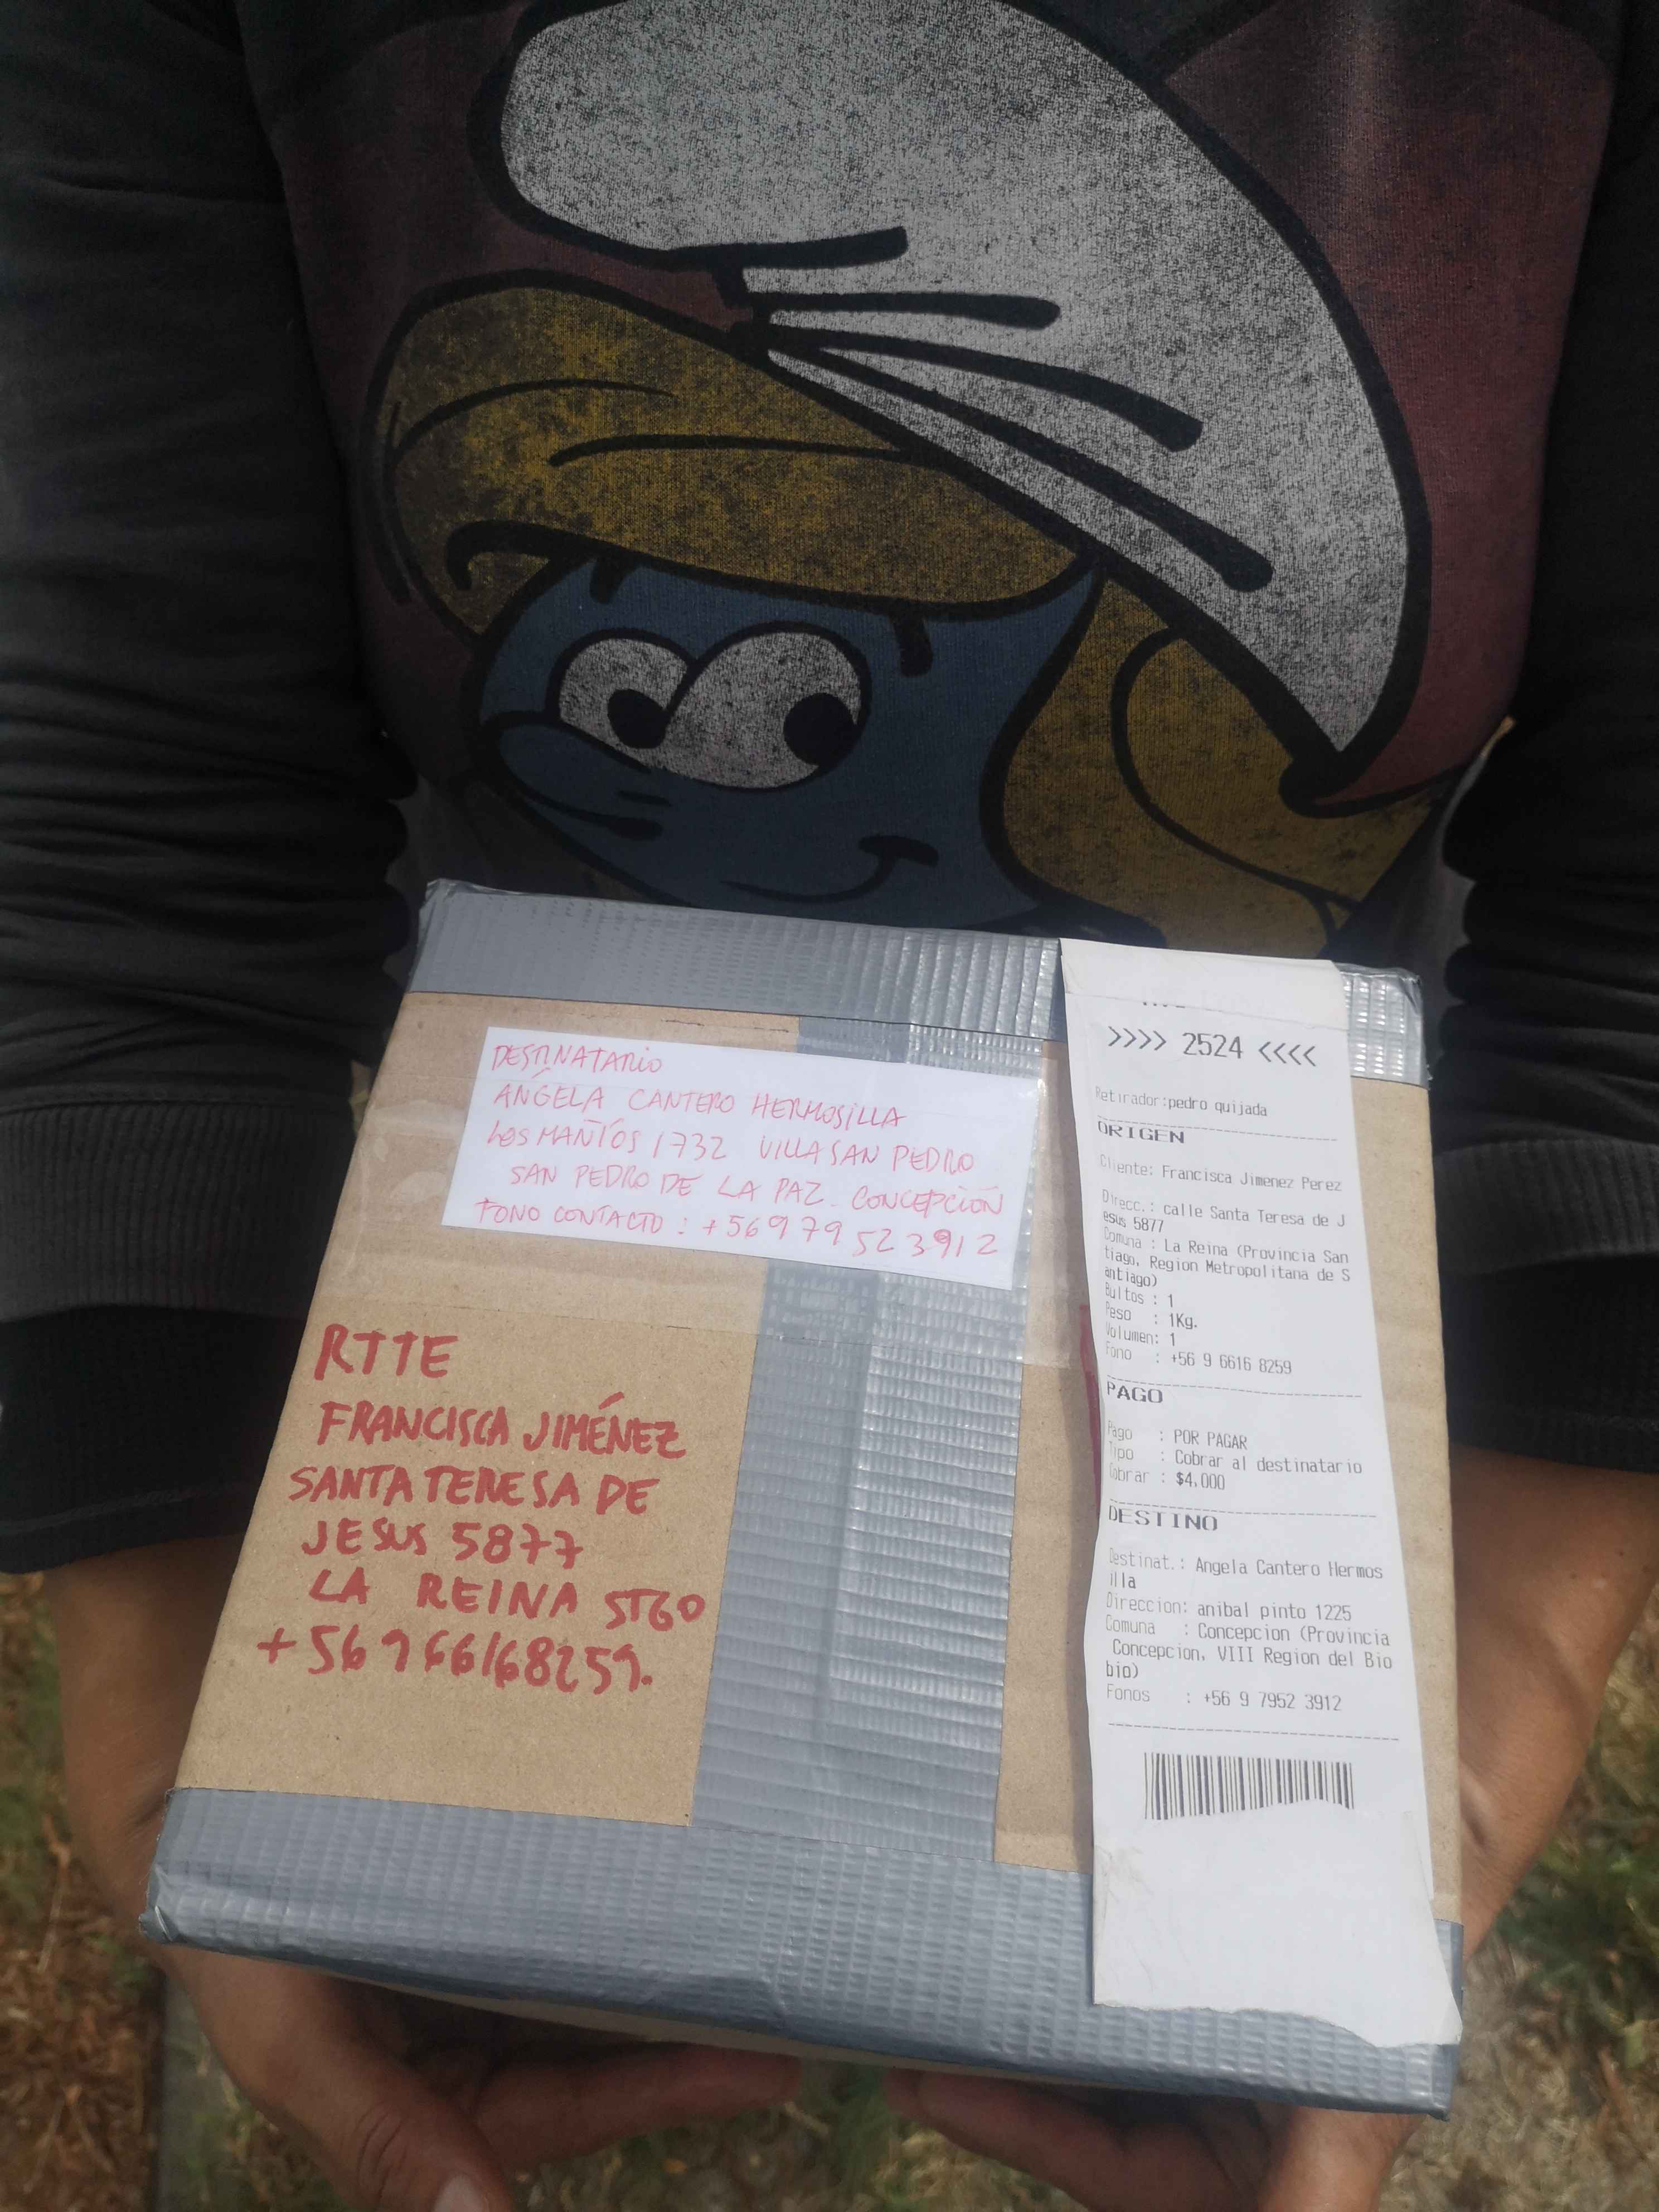 DESTINATARIO
ANGELA CANTERO HERMOSILLA
LOS MAÑIOS 1732 VILLA SAN PEDRO
SAN PEDRO DE LA PAZ - CONCEPCIÓN
FONO CONTACTO : +56 9 79 52 3912
RTTE
FRANCISCA JIMÉNEZ
SANTA TERESA DE
JESUS 5877
LA REINA STGO
+56 9 66168259.
>>>> 2524 <<<<
Retirador:pedro quijada
ORIGEN
Cliente: Francisca Jimenez Perez
Direcc.: calle Santa Teresa de J
esus 5877
Comuna : La Reina (Provincia San
tiago, Region Metropolitana de S
antiago)
Bultos : 1
Peso : 1Kg.
Volumen: 1
Fono : +56 9 6616 8259
PAGO
Pago : POR PAGAR
Tipo : Cobrar al destinatario
Cobrar : $4.000
DESTINO
Destinat.: Angela Cantero Hermos
illa
Direccion: anibal pinto 1225
Comuna : Concepcion (Provincia
Concepcion, VIII Region del Bio
bio)
Fonos : +56 9 7952 3912